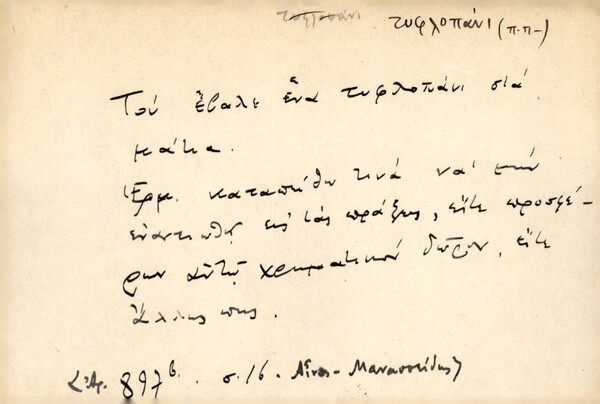 τυφλοπάνι τυφλοπάνι (π-π-)
Τοῦ ἔβαλε ἕνα τυφλοπάνι στὰ
μάτια.
Ἑρμ. καταπείθω τινά νὰ μήν
ἐναντιωθῇ εἰς τὰς πράξεις, εἴτε προσφέ-
ρων αὐτῷ χρηματικόν δῶρον, εἴτε
ἄλλως πως.
Λ.Ἀρ. 897β. σ. 16. Αἶνος - Μανασσείδης